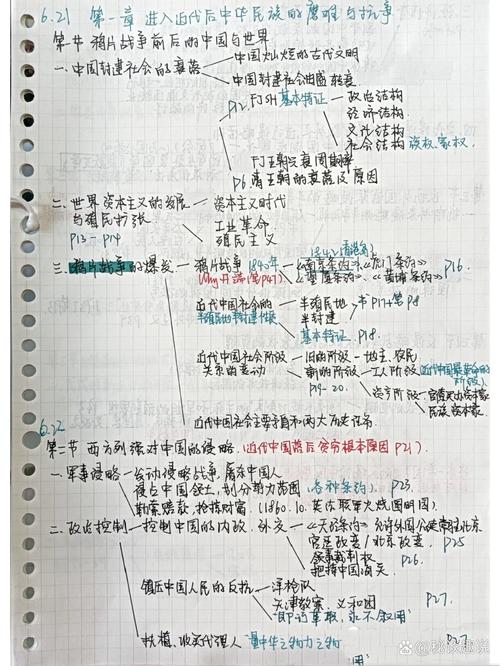 6.21 第一章 进入近代后中华民族的磨难与抗争
第一节 鸦片战争前后的中国与世界
一.中国封建社会的衰落 — 中国灿烂的古代文明
中国封建社会由盛转衰
P12. FJSH 基本特征 — 政治结构
经济结构
文化结构
社会结构 族权.家权.
FJ王朝兴衰周期率
P6. 清王朝的衰落及原因
二.世界资本主义的发展 — 资本主义时代
与殖民扩张 工业革命
P13-P14 殖民主义
三.鸦片战争的爆发 — 鸦片战争 1840年 《南京条约》《虎门条约》 P16.
1842 (香港岛)
Why开端(书P17) 《望厦条约》《黄埔条约》
近代中国社会的 — 半殖民地 书P17+第P8
半殖民地半封建性质 半封建
基本特征 P18.
近代中国社会阶级 — 旧的阶级 — 地主、农民
关系的变动 新的阶级 — 工人阶级
P19-20. 资产阶级 — 官僚买办资本家
民族资本家
近代中国社会主要矛盾和两大历史任务
6.22
第二节 西方列强对中国的侵略 (近代中国落后贫穷根本原因 P21)
一.军事侵略 — 发动侵略战争,屠杀中国人
侵占中国领土,划分势力范围 (各种条约). P23
勒索赔款,抢掠财富. (1860.10. 英法联军火烧圆明园).
二.政治控制 — 控制中国的内政、外交 — 《天津条约》允许外国公使常驻北京
P25
领事裁判权 P26.
把持中国海关
镇压中国人民的反抗 — 洋枪队
天津教案、义和团 P27.
"即行革职,永不叙用"
扶植、收买代理人 "量中华之物力之物 P27
用"